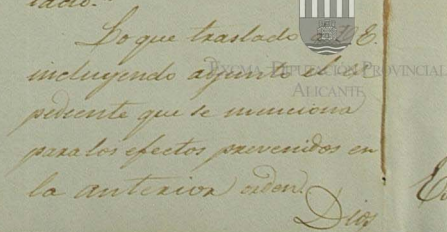 tació."
Lo que traslado á V.E.
incluyendo adjunto el es-
pediente que se menciona
para los efectos prevenidos en
la anterior orden.
Dios
EXCMA. DIPUTACIÓN PROVINCIAL
ALICANTE